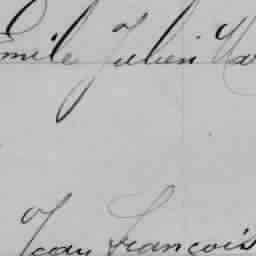 Emile Julien Ma
Jean François